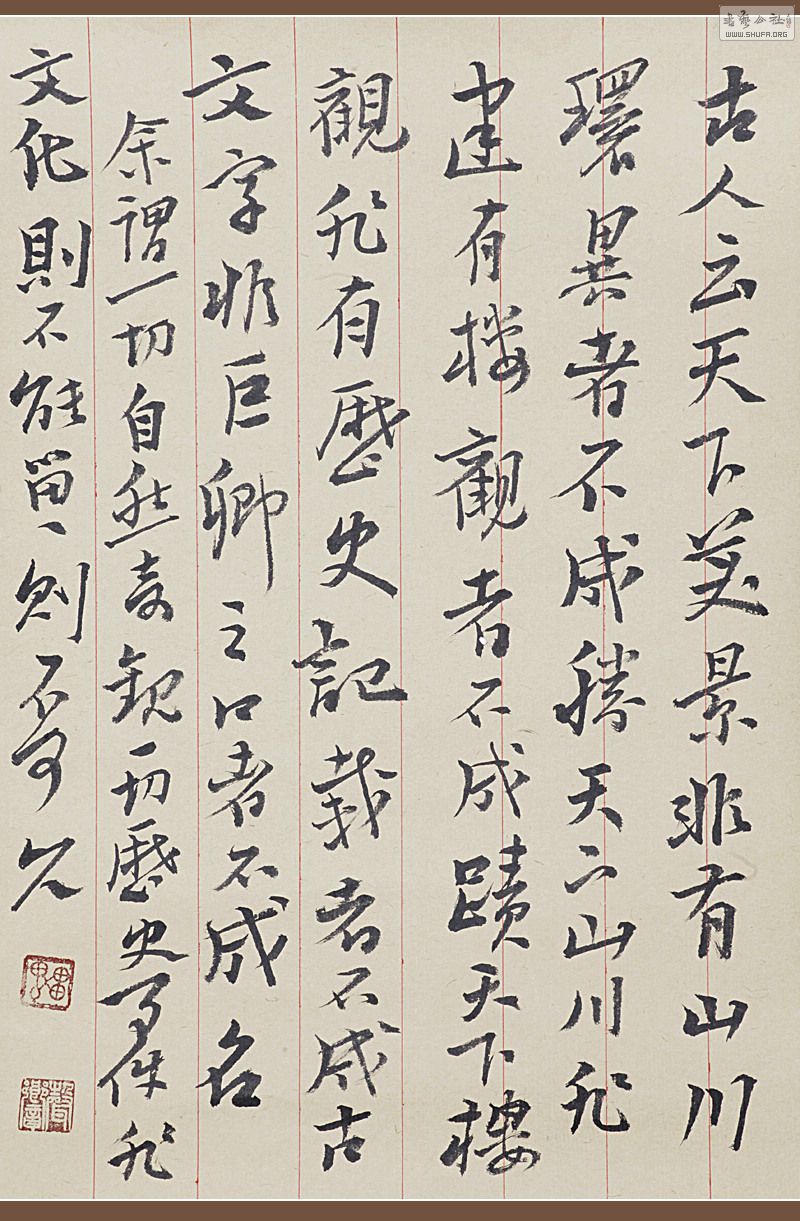 古人云天下美景非有山川
環異者不成勝天下山川非
建有樓觀者不成蹟天下樓
觀非有歷史記載者不成古
文字非巨卿之口者不成名
余謂一切自然奇觀一切歷史事件非
文化則不能留留則不可久
WWW.SHUFA.ORG